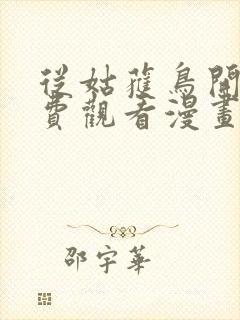 從姑蒦鳥開
費觀看漫畫
邵宇華